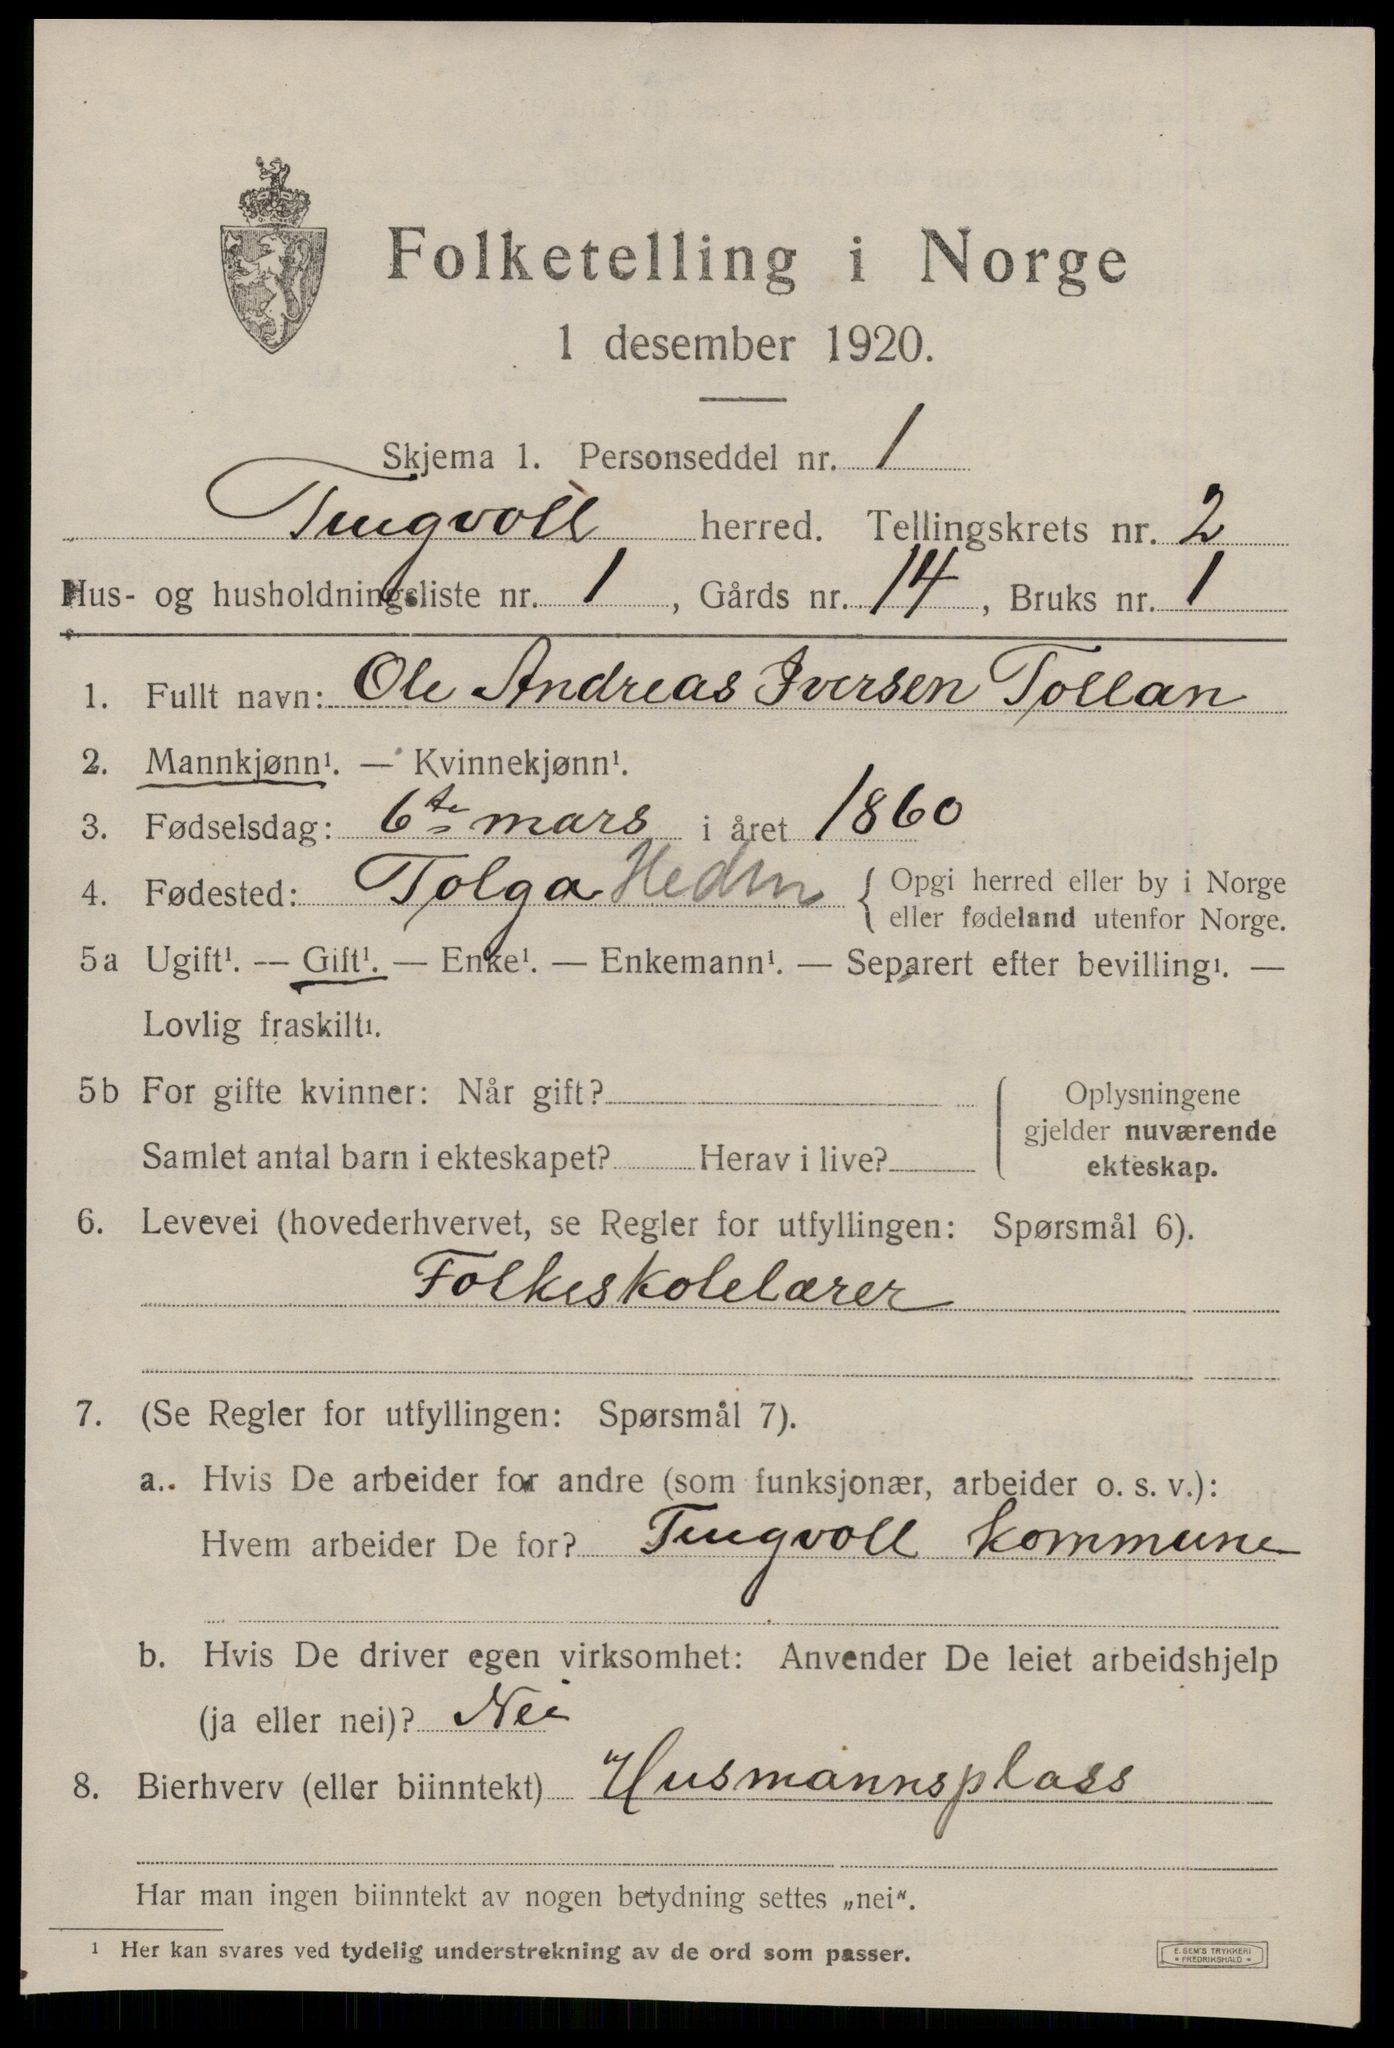 Folketelling i Norge
1 desember 1920.
Skjema 1. Personseddel nr. 1
Tingvoll herred. Tellingskrets nr. 2
Hus- og husholdningsliste nr. 1, Gårds nr. 14, Bruks nr. 1
1. Fullt navn: Ole Andreas Iversen Tollan
2. Mannkjønn¹. — Kvinnekjønn¹.
3. Fødselsdag: 6te mars i året 1860
4. Fødested: Tolga Hedm { Opgi herred eller by i Norge
eller fødeland utenfor Norge.
5a Ugift¹. — Gift¹. — Enke¹. — Enkemann¹. — Separert efter bevilling¹. —
Lovlig fraskilt¹.
5b For gifte kvinner: Når gift?
Samlet antal barn i ekteskapet? Herav i live?
Oplysningene
gjelder nuværende
ekteskap.
6. Levevei (hovederhvervet, se Regler for utfyllingen: Spørsmål 6).
Folkeskolelærer
7. (Se Regler for utfyllingen: Spørsmål 7).
a. Hvis De arbeider for andre (som funksjonær, arbeider o. s. v.):
Hvem arbeider De for? Tingvoll kommune
b. Hvis De driver egen virksomhet: Anvender De leiet arbeidshjelp
(ja eller nei)? Nei
8. Bierhverv (eller biinntekt) Husmannsplass
Har man ingen biinntekt av nogen betydning settes „nei“.
¹ Her kan svares ved tydelig understrekning av de ord som passer.
E. SEM'S TRYKKERI
* FREDRIKSHALD *